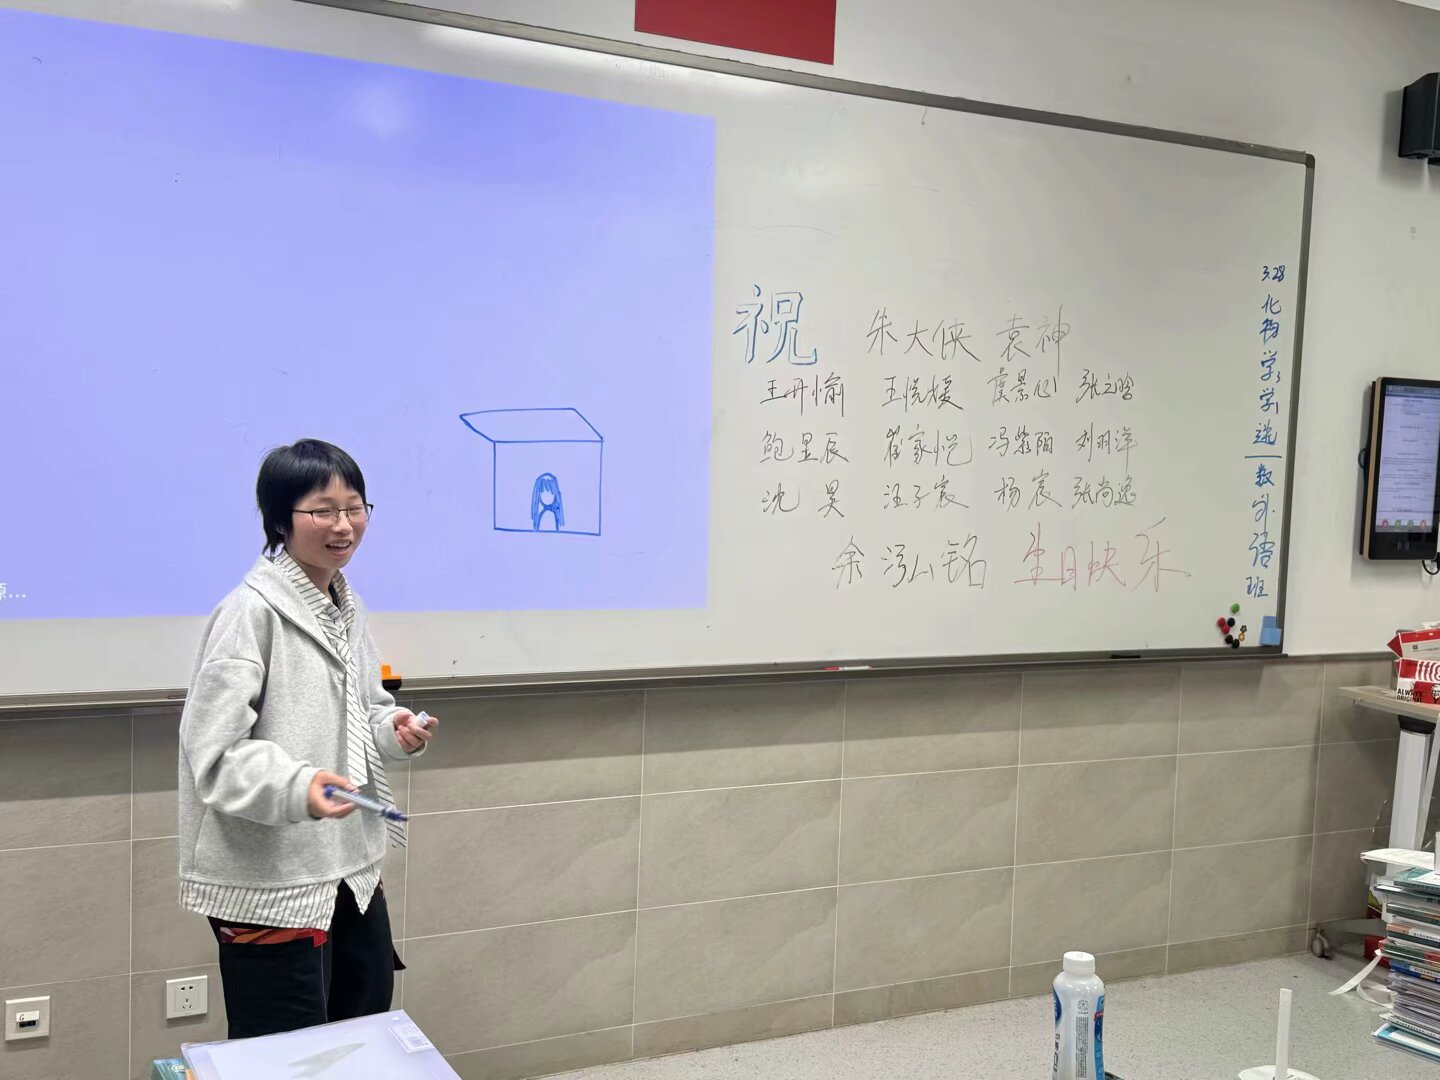 祝
朱大侠 袁神
王开愉 王悦媛 虞景心 张立晗
鲍星辰 蔡家悦 冯紫丽 刘羽洋
沈昊 汪子宸 杨宸 张尚逸
余泓铭 生日快乐
3.28
化物学学选
数外语班
源...
ALWAYS
ORIGINAL